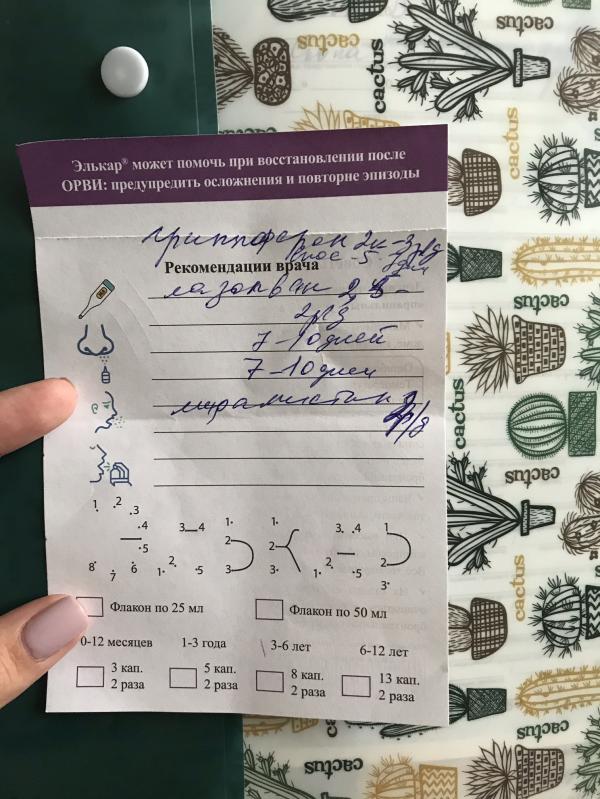 Элькар® может помочь при восстановлении после
ОРВИ: предупредить осложнения и повторне эпизоды
гриппферон 2к - 3 р/д
в нос - 5-7 дн
Рекомендации врача
лазолван
2р/д
7-10 дней
7-10 дней
мирамистин
р/д
1. .2 .3
.4
.5
8. 7 6
3 4
1. 2. .5
1.
2
3
1.
2
3.
3. .4
1. 2. .5
1
2.
3.
Флакон по 25 мл
Флакон по 50 мл
0-12 месяцев 1-3 года 3-6 лет 6-12 лет
3 кап. 5 кап. 8 кап. 13 кап.
2 раза 2 раза 2 раза 2 раза
cactus
cactus
cactus
cactus
cactus
cactus
cactus
cactus
cactus
cactus